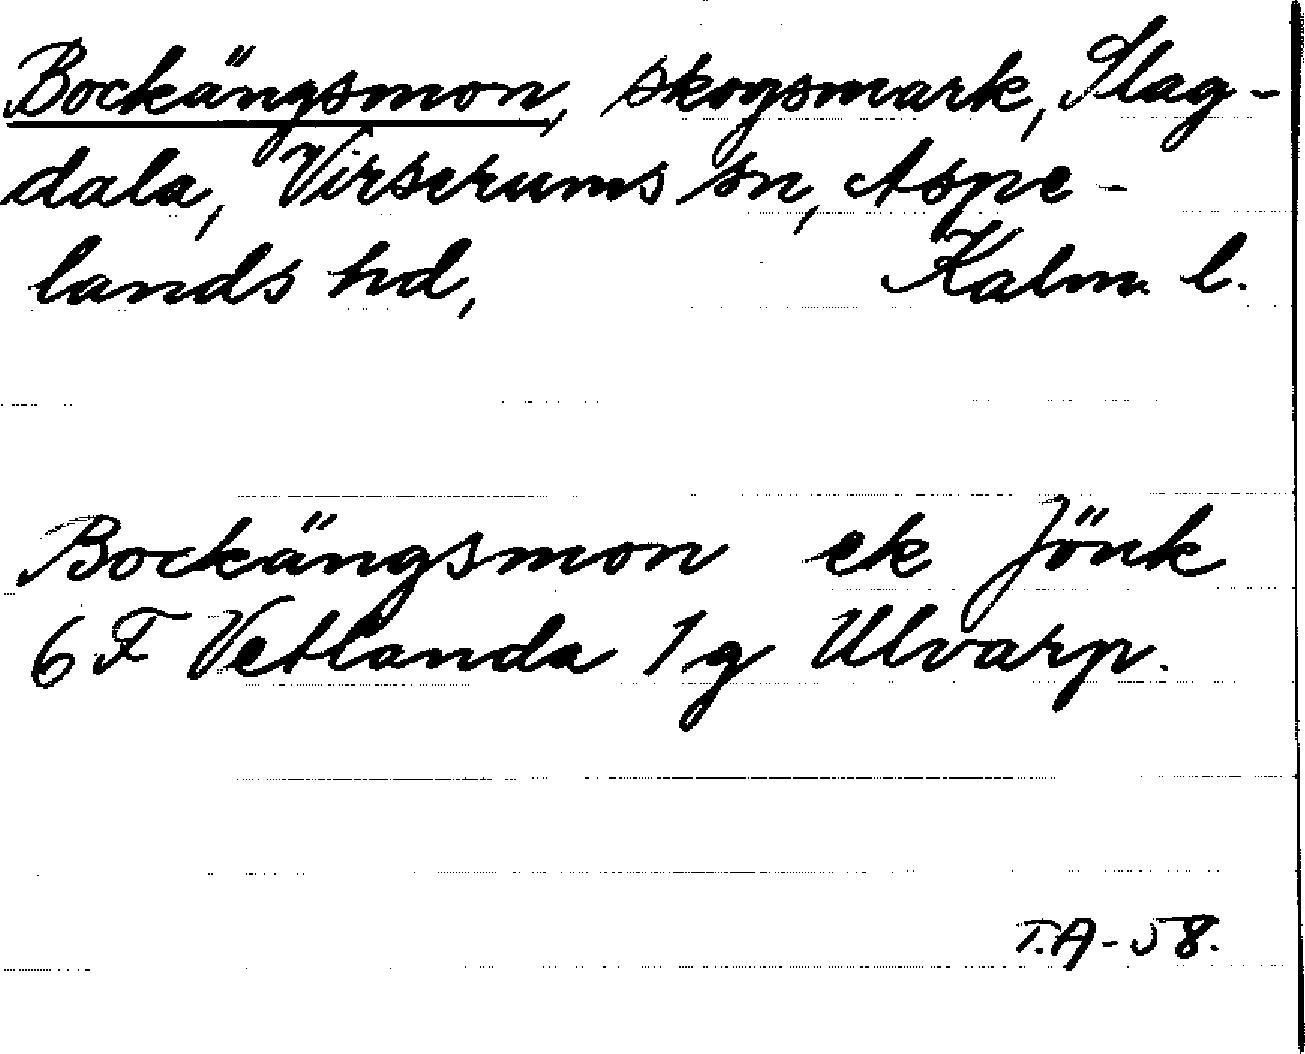 Bockängsmon, skogsmark, Slag-
dala, Virserums sn, Aspe-
lands hd, Kalm. l.
Bockängsmon ek Jönk
6 F Vetlanda 1 g Ulvarp.
T.A-58.